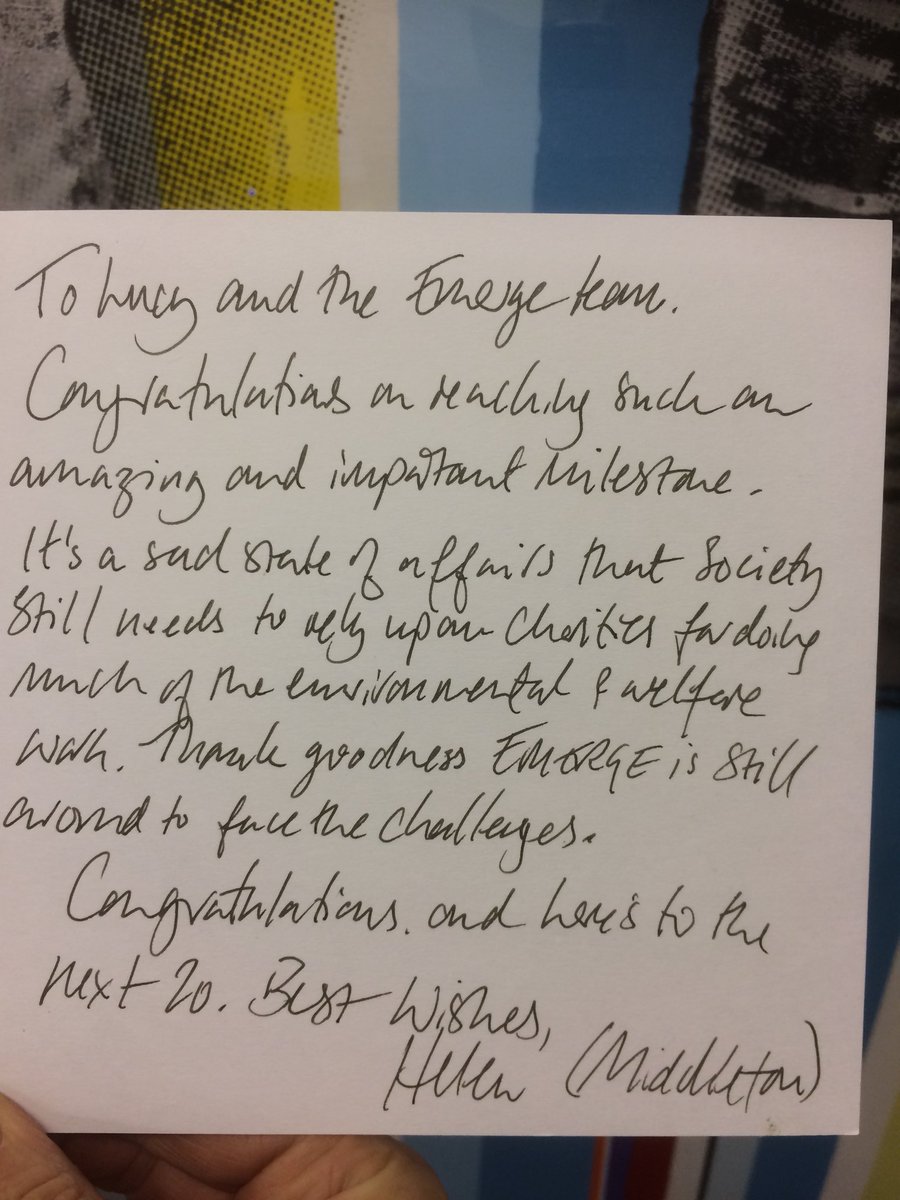 To Lucy and the Emerge team.
Congratulations on reaching such an
amazing and important milestone.
It's a sad state of affairs that Society
still needs to rely upon Charities for doing
much of the environmental & welfare
work. Thank goodness EMERGE is still
around to face the challenges.
Congratulations. and here's to the
next 20. Best Wishes,
Helen (Middleton)